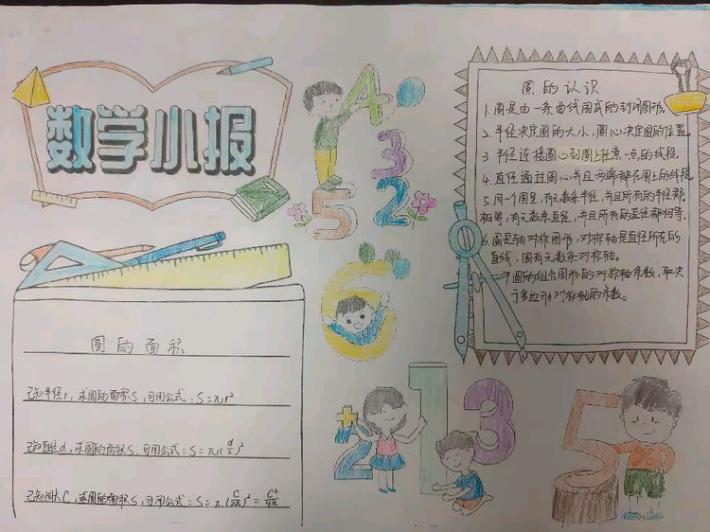 数学小报
4
3
2
5
6
圆的面积
已知半径r,求圆的面积S,可用公式:S=πr²
已知直径d,求圆的面积S,可用公式:S=π(d/2)²
已知周长C,求圆的面积S,可用公式:S=π(C/2π)²=C²/4π
圆的认识
1.圆是由一条曲线围成的封闭图形。
2.半径决定圆的大小,圆心决定圆的位置。
3.半径连接圆心到圆上任意一点的线段。
4.直径通过圆心并且两端都在圆上的线段。
5.同一个圆里,有无数条半径,并且所有的半径都
相等,有无数条直径,并且所有的直径都相等。
6.圆是轴对称图形,对称轴是直径所在的
直线,圆有无数条对称轴。
7.圆的组合图形的对称轴条数,取决
于多边形对称轴的条数。
+
2
1
3
5